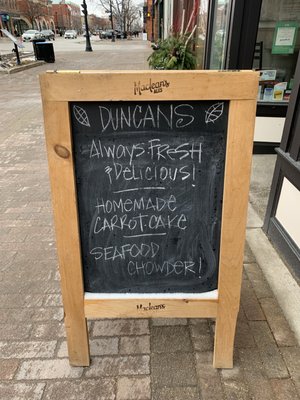 Maclean's
DUNCANS
Always FRESH
& Delicious!
HOMEMADE
CARROT CAKE
SEAFOOD
CHOWDER!
Maclean's